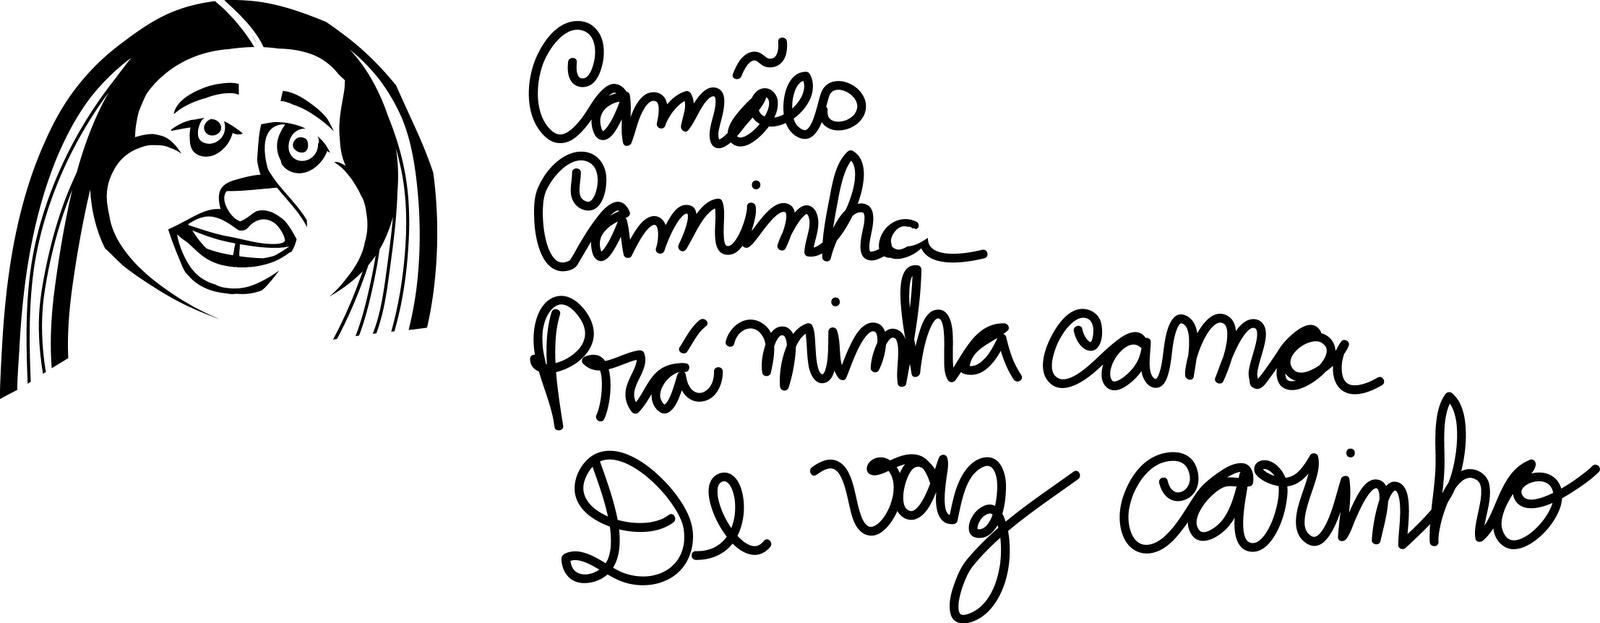 Camões
Caminha
Prá minha cama
De vaz carinho